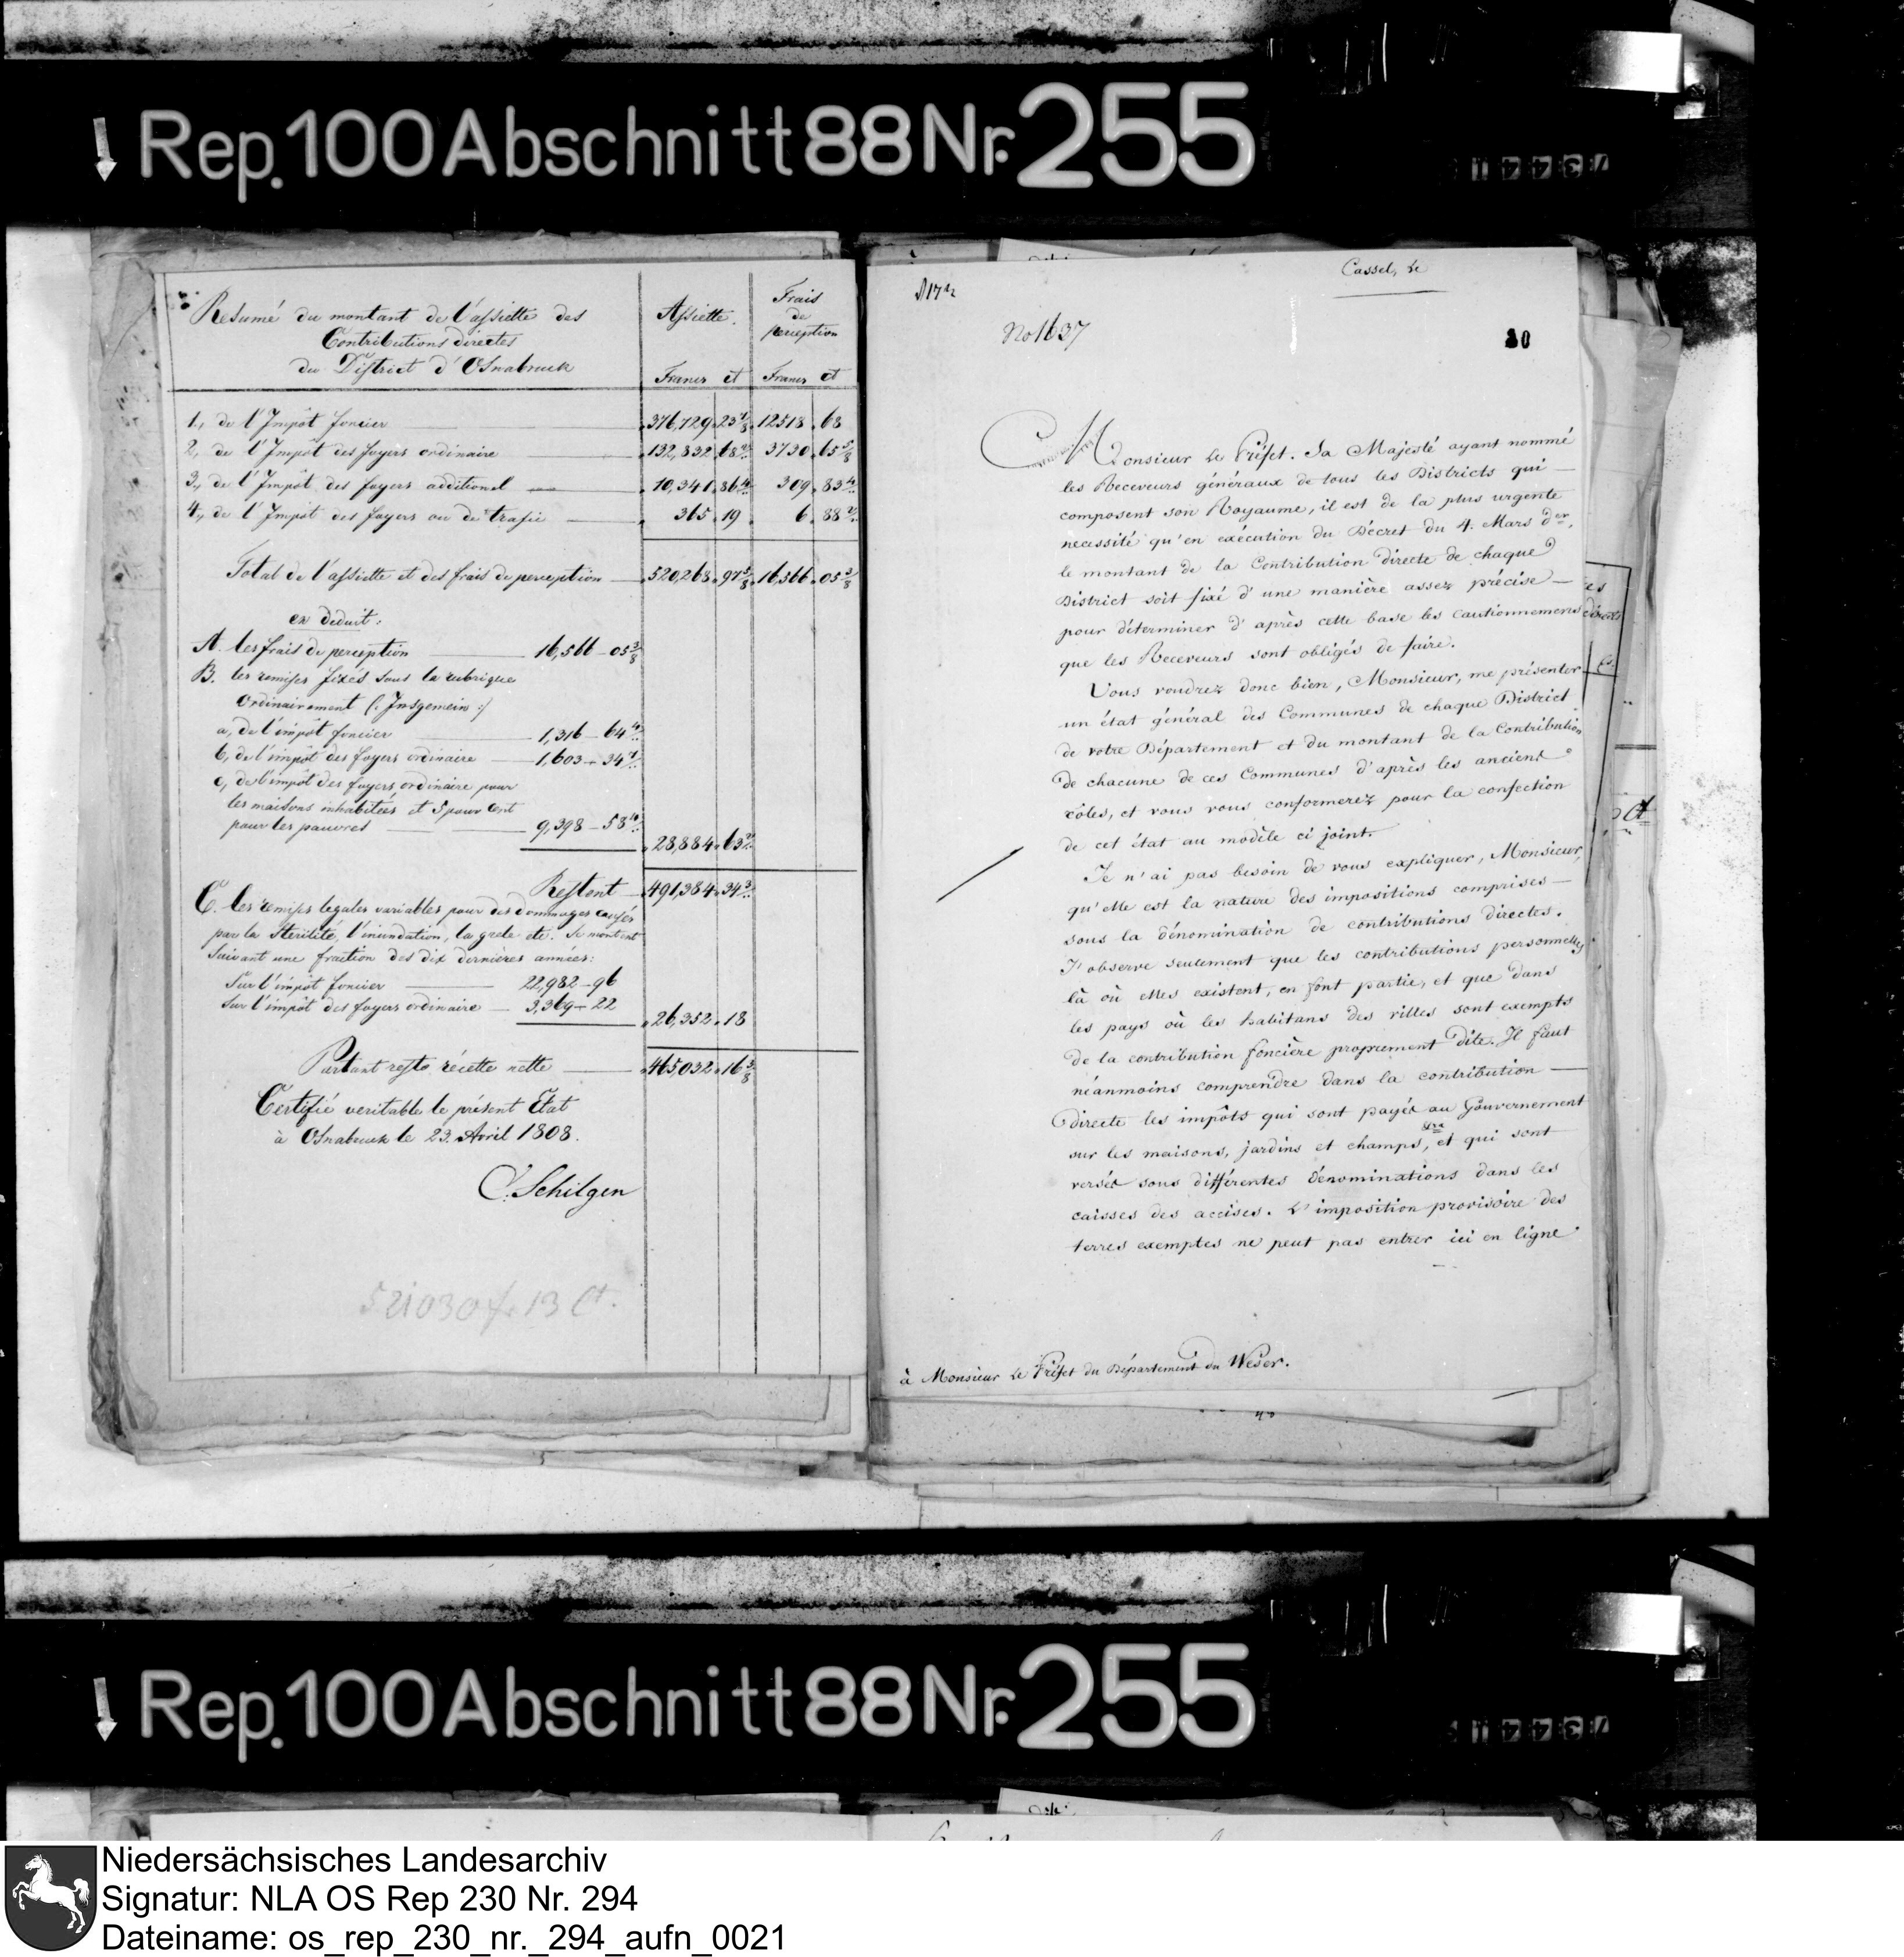 Rep. 100 Abschnitt 88 Nr. 255
Resumé du montant de l'assiette des
Contributions directes
du District d'Osnabruck
Assiette.
Frais
de
perception
Francs ct Francs ct
1, de l'Impôt foncier 376,729 23 12518 68
2, de l'Impôt des foyers ordinaire 132,832 68 3730 65 5/8
3, de l'Impôt des foyers additionel 10,341 86 309 83
4, de l'Impôt des foyers ou de trafic 365 19 6 88
Total de l'assiette et des frais de perception 520,268 97 5/8 16,566 05 3/8
en deduit:
A. les frais de perception 16,566 - 05 3/8
B. les remises fixés sous la rubrique
Ordinairement (: Insgemein :)
a, de l'impôt foncier 1,316 - 64
b, de l'impôt des foyers ordinaire 1,603 - 34
c, de l'impôt des foyers ordinaire pour
les maisons inhabitées et 5 pour Cent
pour les pauvres 9,398 - 58
28,884 63
Restent 491,384 34
C. les remises legales variables pour des dommages causés
par la Sterilité, l'inundation, la grele etc. se montent
Suivant une fraction des dix dernières années:
Sur l'impôt foncier 22,982 - 96
Sur l'impôt des foyers ordinaire 3,369 - 22
26,352 18
Partant reste récette nette 465,032 16 3/8
Certifié veritable le présent Etat
à Osnabruck le 23. Avril 1808.
C. Schilgen
521030 f. 13 Ct.
Cassel, le
No 1637
30
Monsieur le Préfet. Sa Majesté ayant nommé
les Receveurs généraux de tous les Districts qui
composent son Royaume, il est de la plus urgente
necessité qu'en exécution du Décret du 4. Mars der,
le montant de la Contribution directe de chaque
District soit fixé d'une manière assez précise
pour déterminer d'après cette base les cautionnemens
que les Receveurs sont obligés de faire.
Vous voudrez donc bien, Monsieur, me présenter
un état général des Communes de chaque District
de votre Département et du montant de la Contribution
de chacune de ces Communes d'après les anciens
rôles, et vous vous conformerez pour la confection
de cet état au modèle ci joint.
Je n'ai pas besoin de vous expliquer, Monsieur,
qu'elle est la nature des impositions comprises
sous la dénomination de contributions directes.
J'observe seulement que les contributions personnelles
là où elles existent, en font partie, et que dans
les pays où les habitans des villes sont exempts
de la contribution foncière proprement dite. Il faut
néanmoins comprendre dans la contribution
directe les impôts qui sont payés au Gouvernement
sur les maisons, jardins et champs, et qui sont
versés sous différentes dénominations dans les
caisses des accises. L'imposition provisoire des
terres exemptes ne peut pas entrer ici en ligne
à Monsieur le Préfet du Département du Weser.
Rep. 100 Abschnitt 88 Nr. 255
Niedersächsisches Landesarchiv
Signatur: NLA OS Rep 230 Nr. 294
Dateiname: os_rep_230_nr._294_aufn_0021